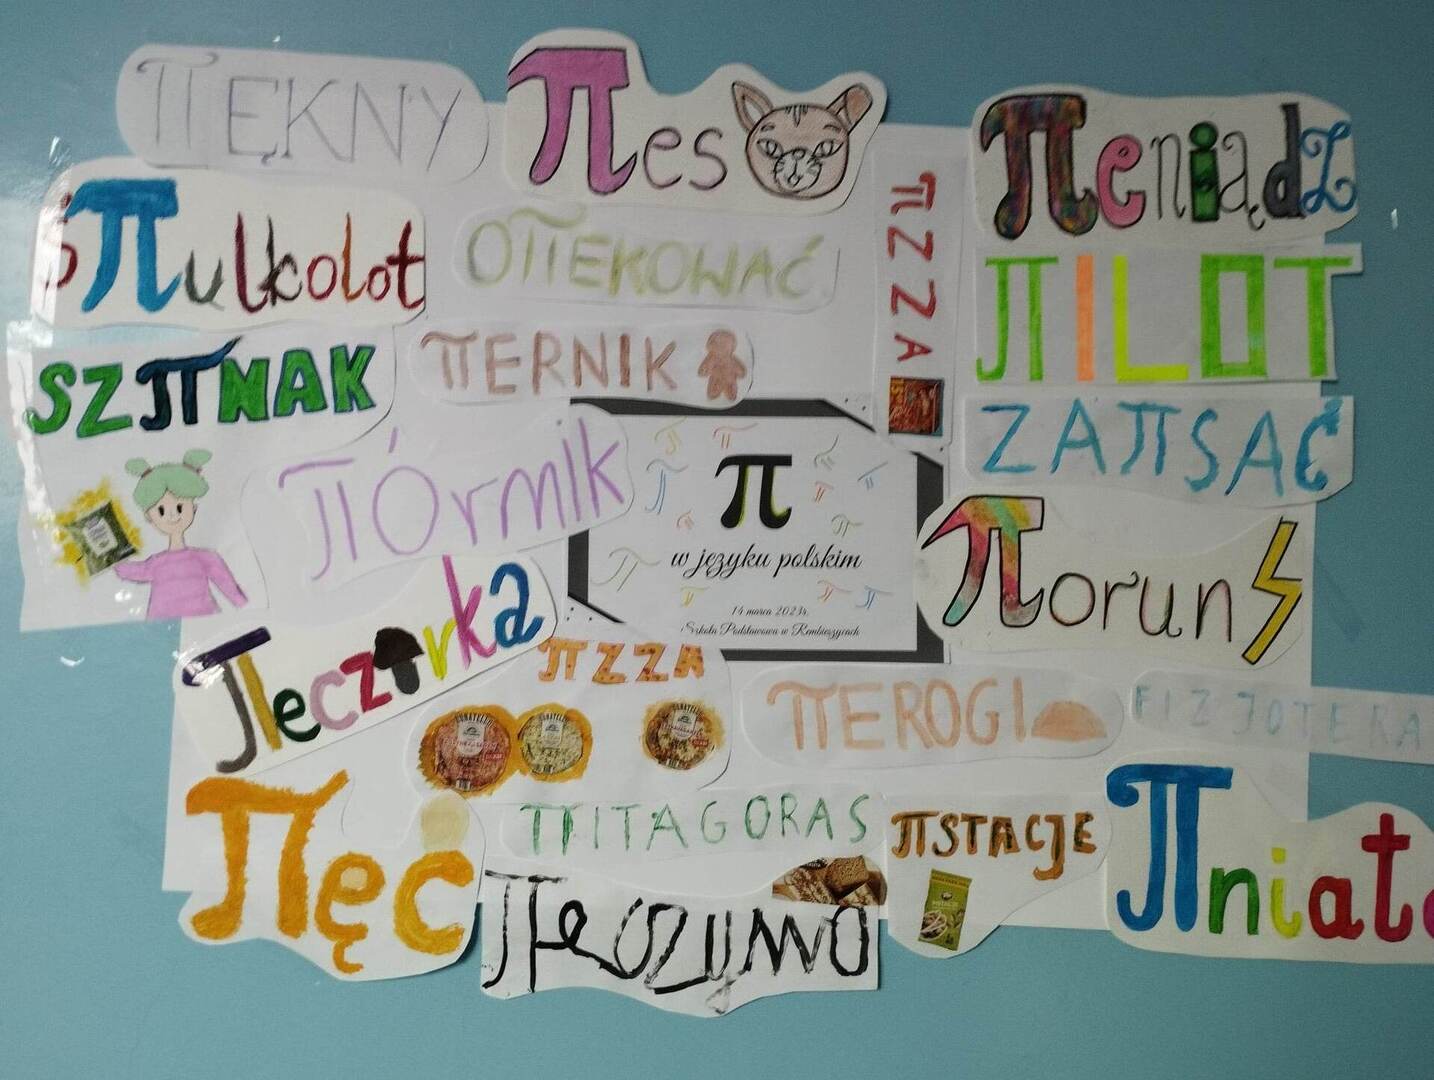 πĘKNY
πes
πeniądz
Śπulkolot
OπEKOWAĆ
πZZA
πILOT
SZπNAK
πERNIK
ZAπSAĆ
πÓrnIK
π
w języku polskim
14 marca 2023r.
Szkoła Podstawowa w Rembieszycach
πorun
πeczarka
πZZA
πEROGI
FIZJOTERA
πęć
πTAGORAS
πSTACJE
πniata
πeczywo